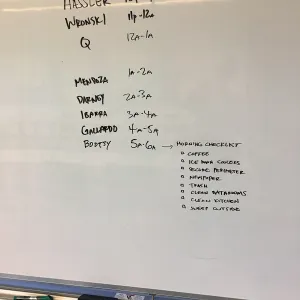 HASSLER
WRONSKI 11p-12a
Q 12A-1A
MENDOZA 1A-2A
DARNEY 2A-3A
IBARRA 3A-4A
GALLARDO 4A-5A
BOOTSY 5A-6A → MORNING CHECKLIST
COFFEE
ICE COOLERS
SECURE PERIMETER
NEWSPAPER
TRASH
CLEAN BATHROOMS
CLEAN KITCHEN
SWEEP OUTSIDE